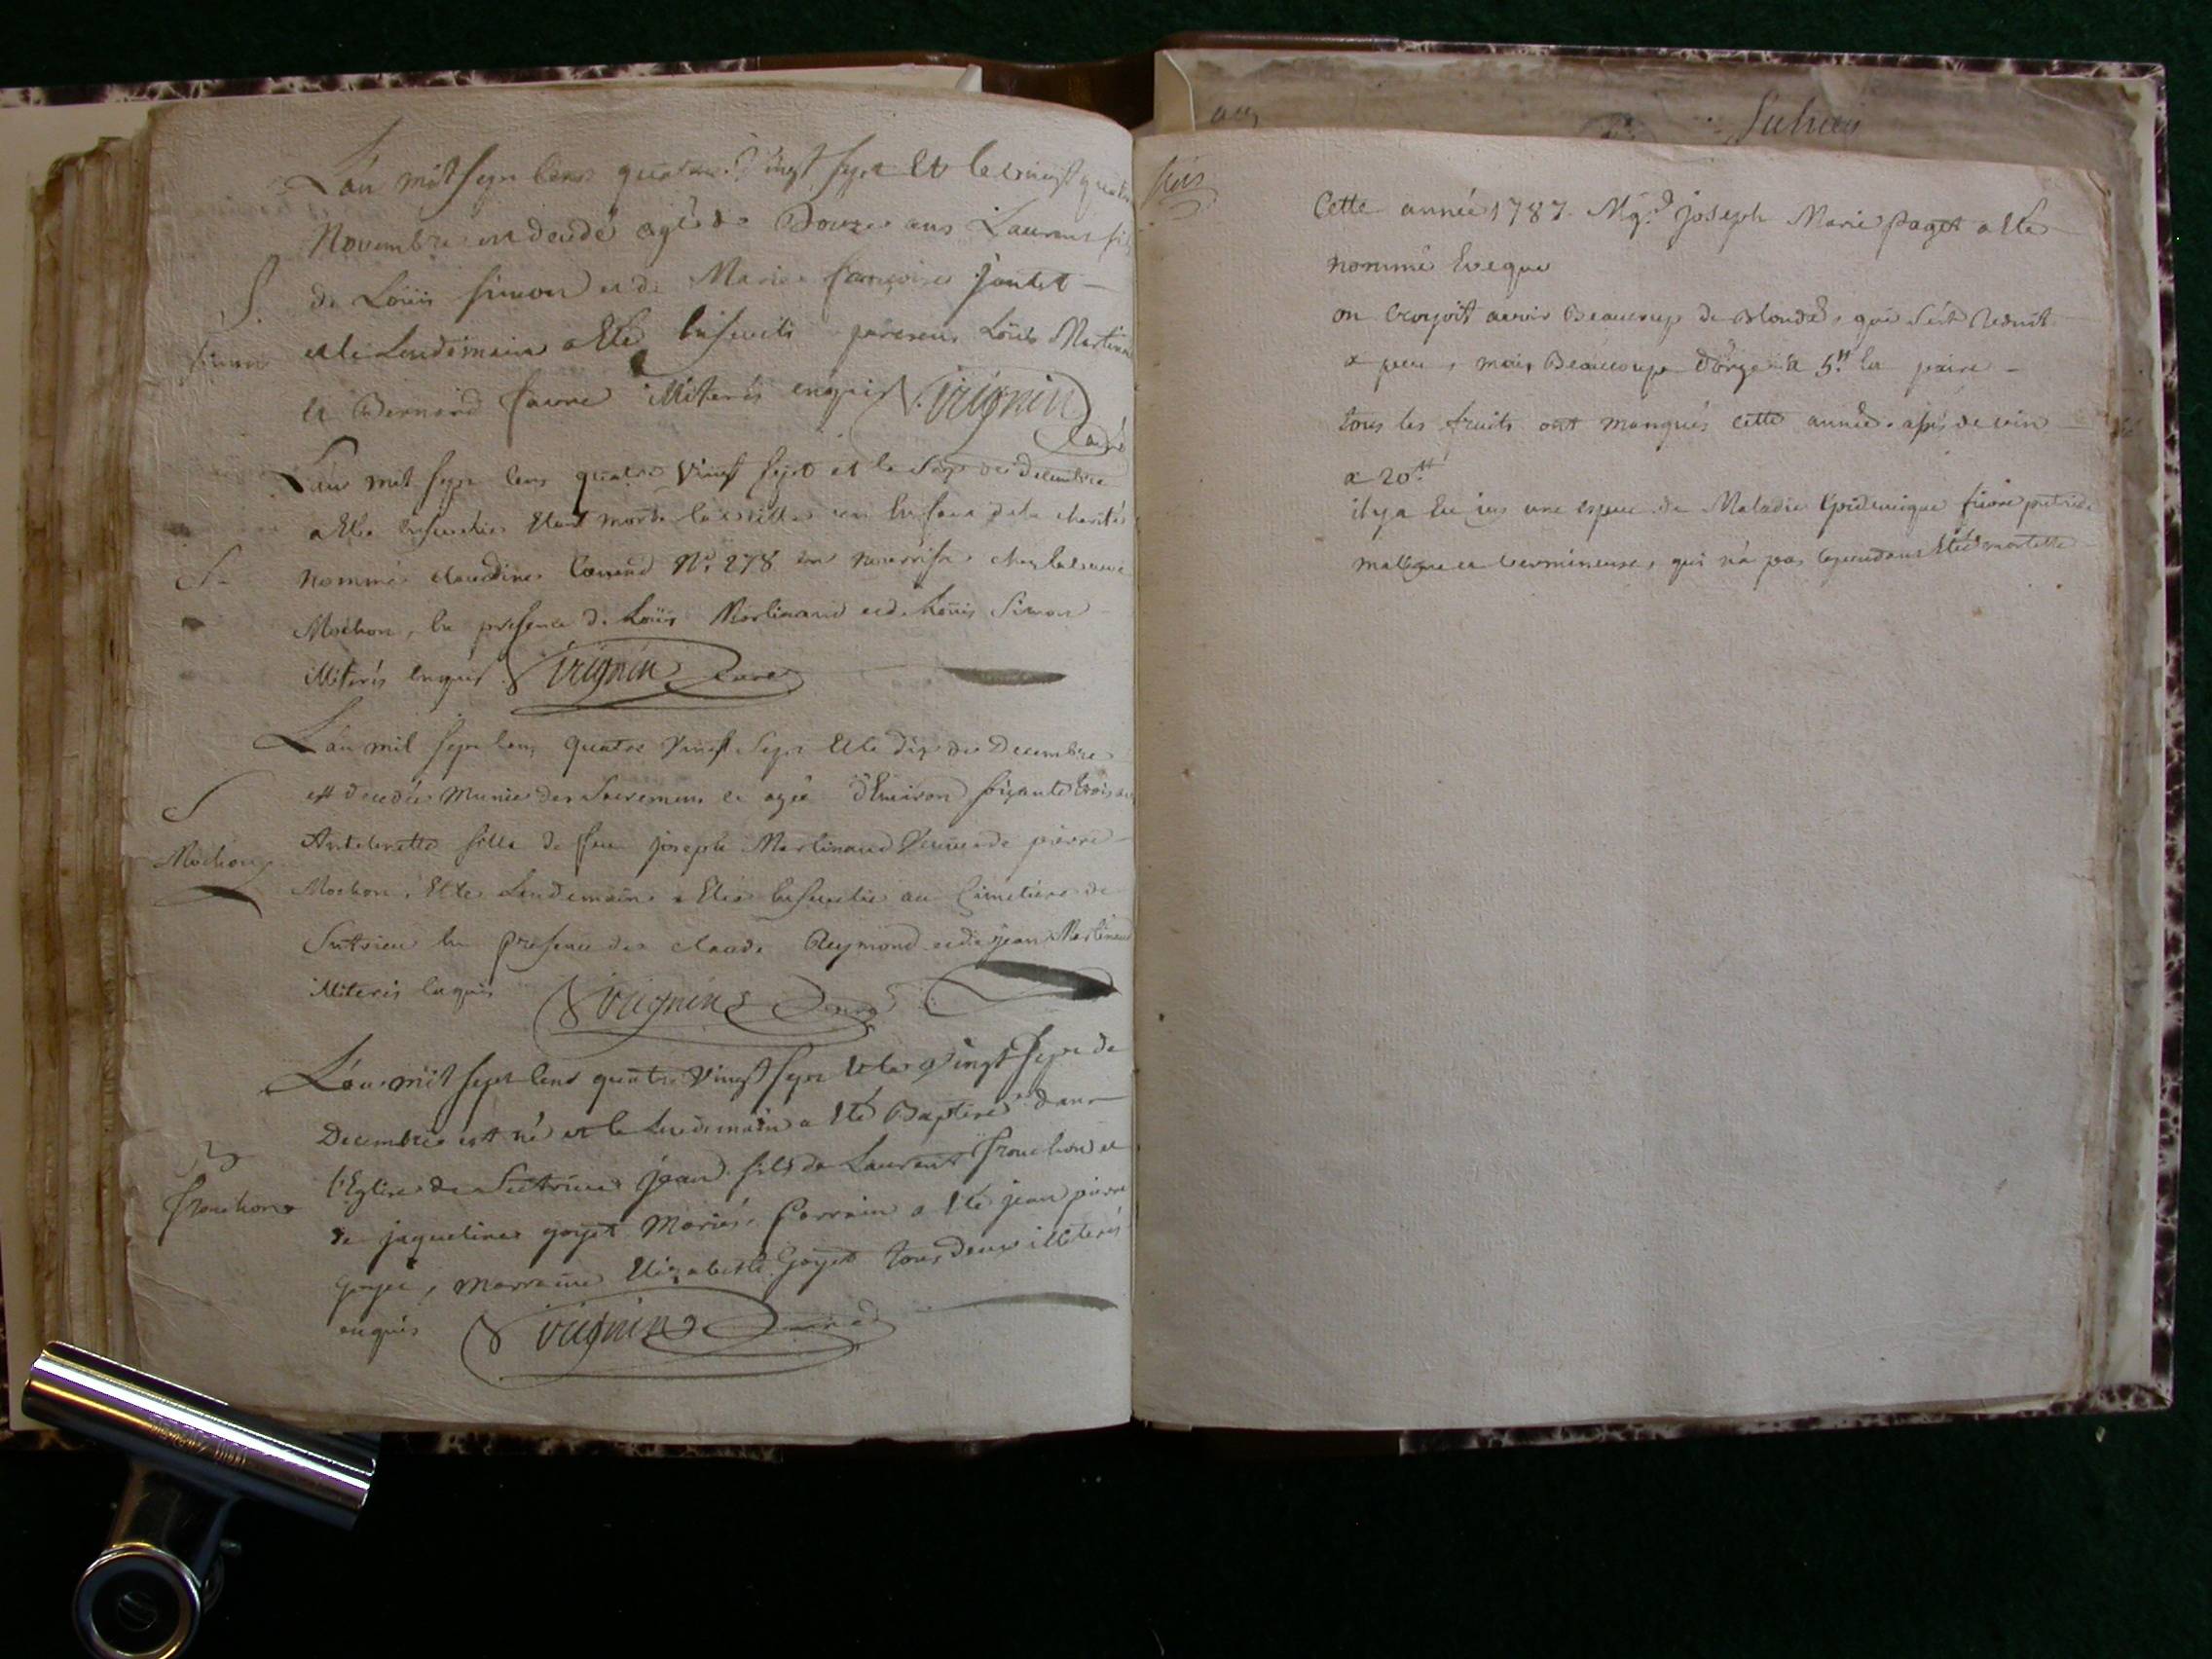 L'an mil sept cens quatre vingt sept et le vingt quatre
Novembre est decedé agé de Douze ans Laurent fils
S. de Loüis Simon et de Marie françoise
Simon et le Lendemain a Eté Enseveli presens Loüis Martinand
et Bernard favre illiterés enquis Virignin
Curé
L'an mil sept cens quatre vingt sept et le Sept de decembre
a Eté Ensevelie Etant morte la veille un Enfant de la charité
S. nommé claudine N.º 278 en nourrisse chez la veuve
Mochon, En presence de Loüis Martinand et de Loüis Simon
illiterés enquis Virignin Curé
L'an mil sept cens quatre vingt sept Et le dix de Decembre
S est decedée Munie des Sacremens et agée d'Environ soixante trois ans
Anthelmette fille de feu joseph Martinand Veuve de pierre
Mochon
Mochon, Et le Lendemain a Eté Ensevelie au Cimetiere de
Sutrieu En presence de claude Reymond et de jean Martinand
illiterés Enquis Virignin Curé
L'an mil sept cens quatre vingt sept Et le vingt sept de
Decembre est né et le Lendemain a Eté Baptisé dans
l'Eglise de Sutrieu jean fils de Laurent fronchon et
fronchon
de jaqueline goyet Mariés, parrain a Eté jean pierre
goyet, marraine Elizabeth Goyet tous deux illiterés
enquis Virignin Curé
Cette année 1787. Mg.r joseph Marie paget a Eté
nommé Eveque
on croyoit avoir Beaucoup de Blonde, qui s'est reduit
a peu, mais Beaucoup d'orge a 5.tt la paire
tous les fruits ont manqués cette année. de vin
a 20.tt
il y a Eu ici une espece de Maladie Epidemique fievre putride
maligne et vermineuse, qui n'a pas cependant Eté mortelle